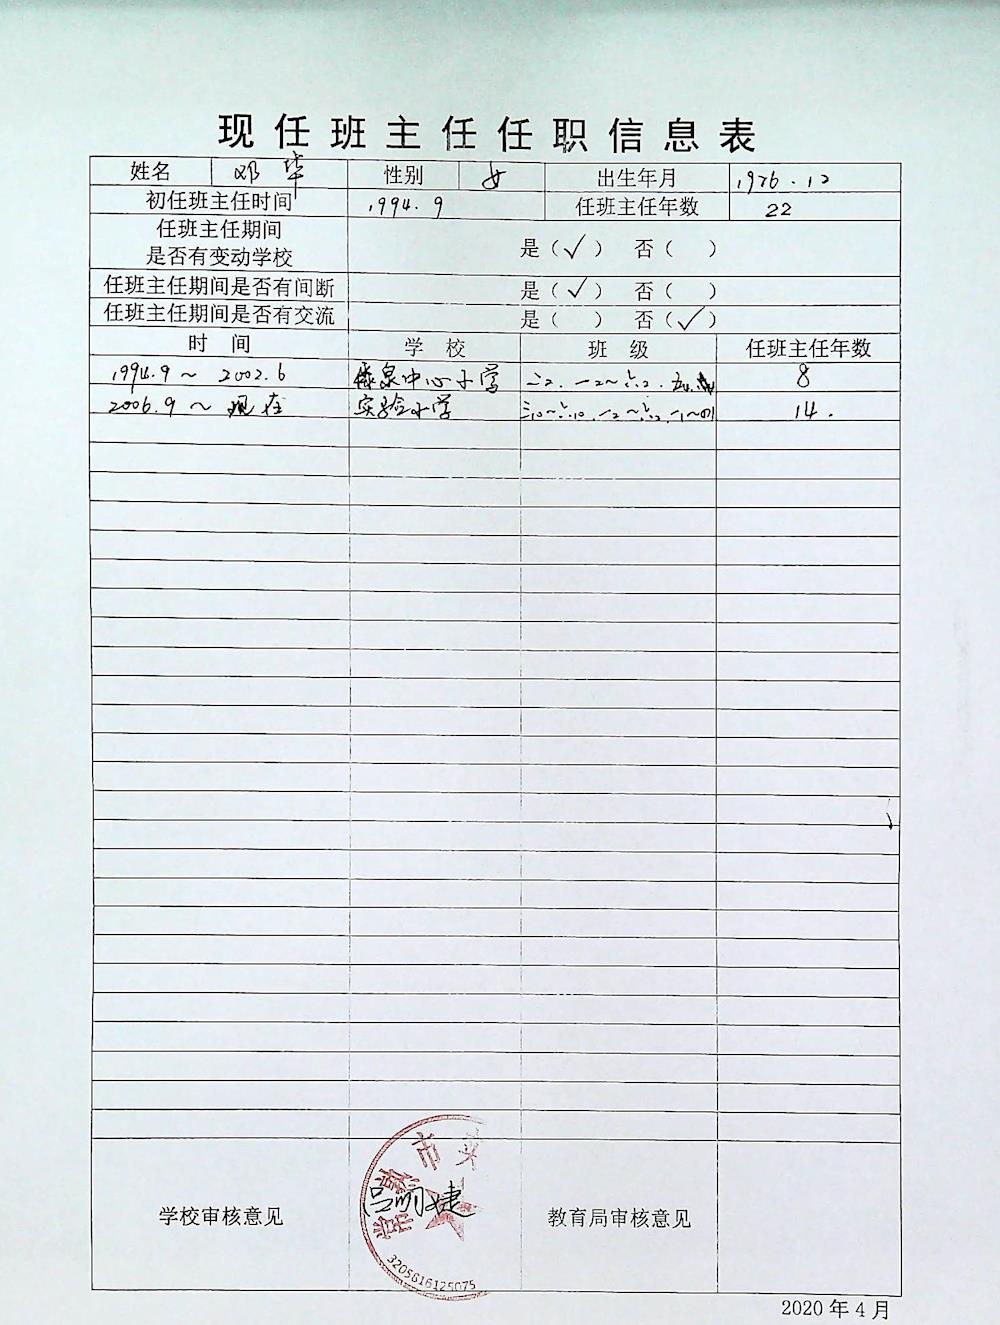 现任班主任任职信息表
姓名 邓华 性别 女 出生年月 1976.12
初任班主任时间 1994.9 任班主任年数 22
任班主任期间
是否有变动学校 是（√） 否（ ）
任班主任期间是否有间断 是（√） 否（ ）
任班主任期间是否有交流 是（ ） 否（√）
时间 学校 班级 任班主任年数
1994.9～2002.6 中心小学 二2.一2～六2. 8
2006.9～现在 实验小学 三10～六10.一2～六2.一1～四1 14.
常熟市实
吕丽婕
学校审核意见 教育局审核意见
3205816125075
2020年4月